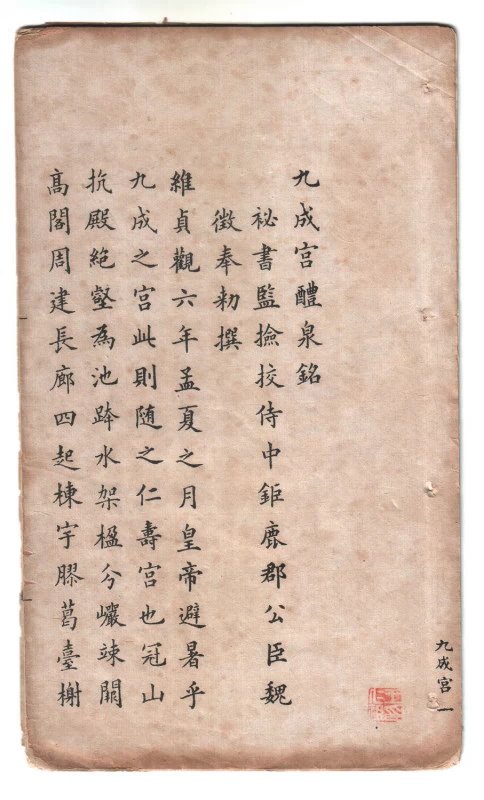 九成宮醴泉銘
祕書監撿挍侍中鉅鹿郡公臣魏
徵奉勑撰
維貞觀六年孟夏之月皇帝避暑乎
九成之宮此則随之仁壽宮也冠山
抗殿絶壑為池跨水架楹分巗竦闕
髙閣周建長廊四起棟宇膠葛臺榭
九成宮 一